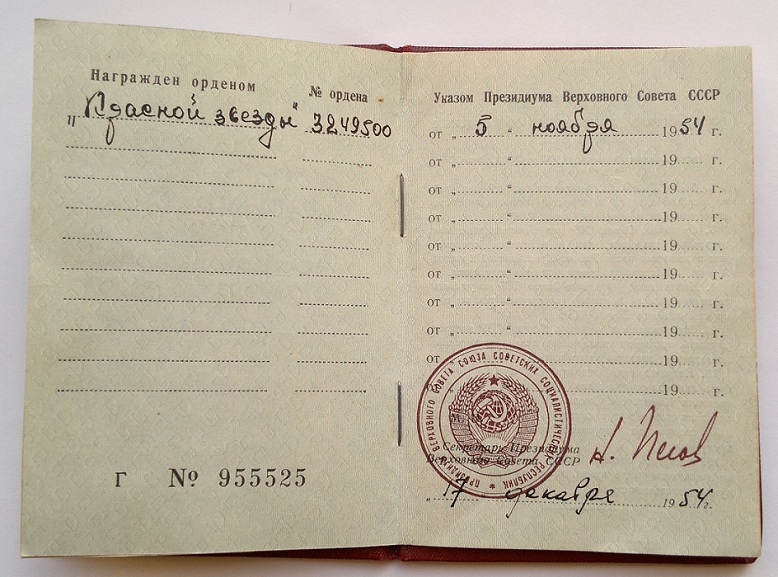 Награжден орденом № ордена
„Красной звезды" 3249500
Г № 955525
Указом Президиума Верховного Совета СССР
от „ 5 “ ноября 1954 г.
от „ “ 19 г.
от „ “ 19 г.
от „ “ 19 г.
от „ “ 19 г.
от „ “ 19 г.
от „ “ 19 г.
от „ “ 19 г.
от „ 19 г.
19 г.
ПРЕЗИДИУМ ВЕРХОВНОГО СОВЕТА СОЮЗА СОВЕТСКИХ СОЦИАЛИСТИЧЕСКИХ РЕСПУБЛИК
Секретарь Президиума
Верховного Совета СССР
Н. Пегов
„17 декабря 1954 г.